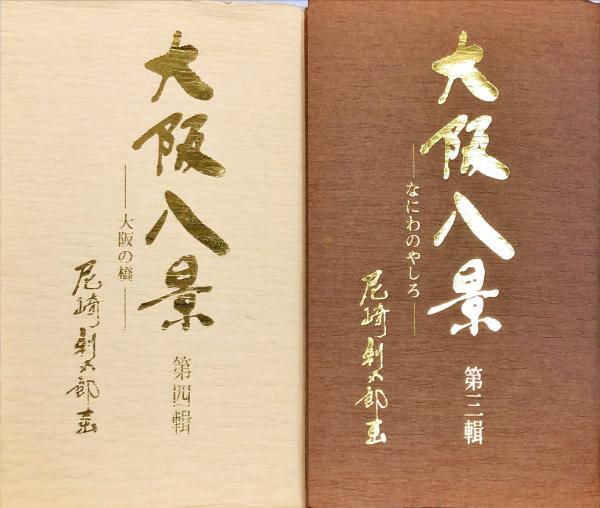 大阪八景
第三輯
―なにわのやしろ―
尼崎太郎
大阪八景
第四輯
―大阪の橋―
尼崎太郎